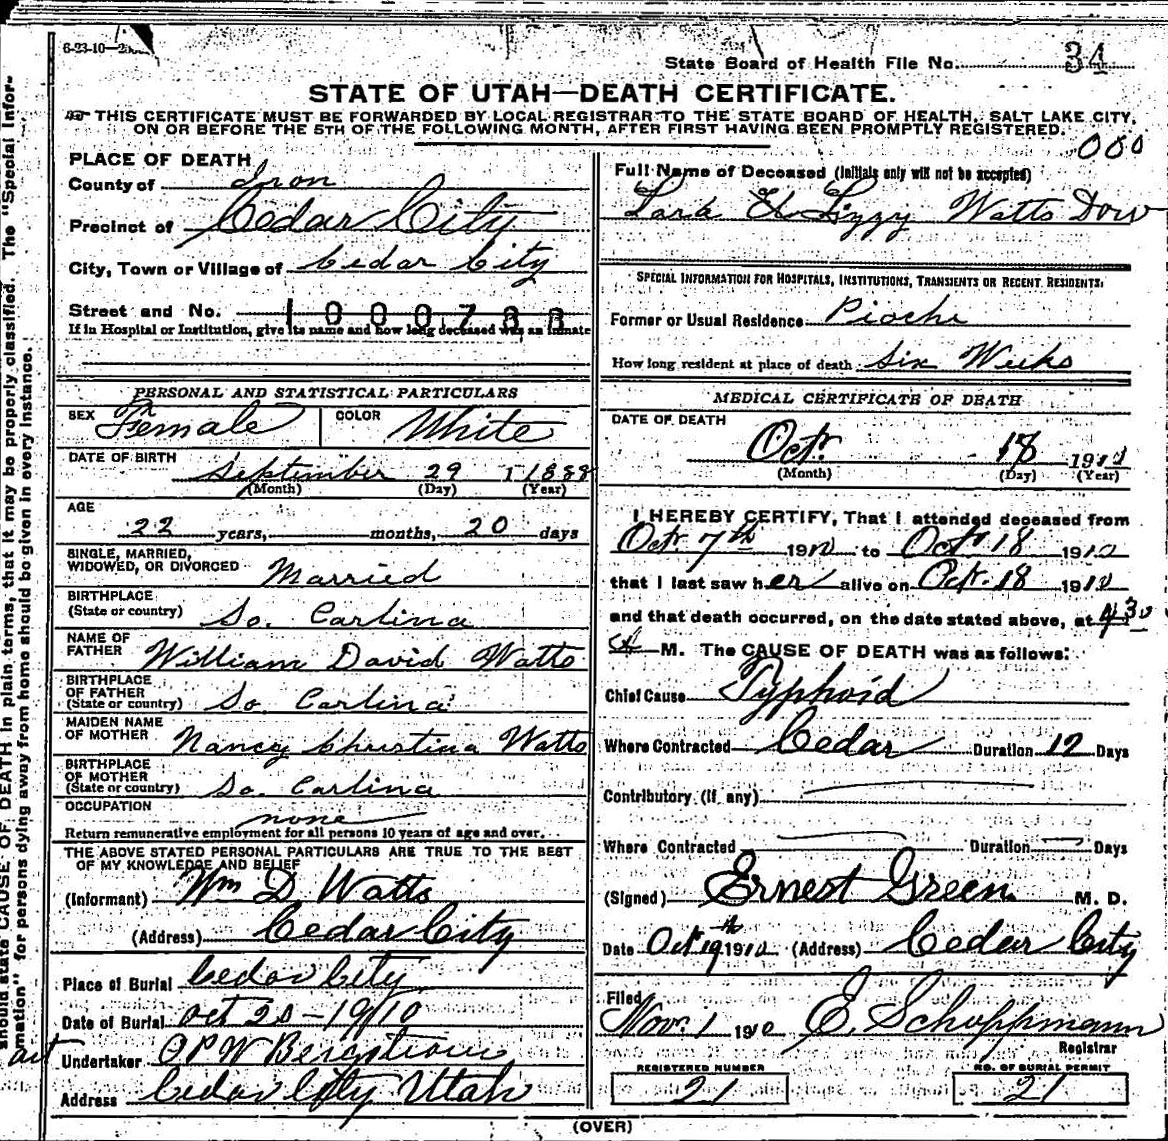 6-23-10
State Board of Health File No. 34
STATE OF UTAH—DEATH CERTIFICATE.
THIS CERTIFICATE MUST BE FORWARDED BY LOCAL REGISTRAR TO THE STATE BOARD OF HEALTH, SALT LAKE CITY,
ON OR BEFORE THE 5TH OF THE FOLLOWING MONTH, AFTER FIRST HAVING BEEN PROMPTLY REGISTERED.
PLACE OF DEATH
County of Iron
Precinct of Cedar City
City, Town or Village of Cedar City
Street and No. 1000788
If in Hospital or Institution, give its name and how long deceased was an inmate
PERSONAL AND STATISTICAL PARTICULARS
SEX Female COLOR White
DATE OF BIRTH
September 29 1888
(Month) (Day) (Year)
AGE
22 years, months, 20 days
SINGLE, MARRIED,
WIDOWED, OR DIVORCED Married
BIRTHPLACE
(State or country) So. Carlina
NAME OF
FATHER William David Watts
BIRTHPLACE
OF FATHER
(State or country) So. Carlina
MAIDEN NAME
OF MOTHER Nancy Christina Watts
BIRTHPLACE
OF MOTHER
(State or country) So. Carlina
OCCUPATION
none
Return remunerative employment for all persons 10 years of age and over.
THE ABOVE STATED PERSONAL PARTICULARS ARE TRUE TO THE BEST
OF MY KNOWLEDGE AND BELIEF
(Informant) Wm D Watts
(Address) Cedar City
Place of Burial Cedar City
Date of Burial Oct 20-1910
Undertaker O P W Bergstrom
Address Cedar City Utah
000
Full Name of Deceased (Initials only will not be accepted)
Lizzy Watts Dow
SPECIAL INFORMATION FOR HOSPITALS, INSTITUTIONS, TRANSIENTS OR RECENT RESIDENTS:
Former or Usual Residence Pioche
How long resident at place of death Six Weeks
MEDICAL CERTIFICATE OF DEATH
DATE OF DEATH
Oct. 18 1910
(Month) (Day) (Year)
I HEREBY CERTIFY, That I attended deceased from
Oct. 7th 1910 to Oct. 18 1910
that I last saw her alive on Oct. 18 1910
and that death occurred, on the date stated above, at 430
A M. The CAUSE OF DEATH was as follows:
Chief Cause Typhoid
Where Contracted Cedar Duration 12 Days
Contributory (if any)
Where Contracted Duration Days
(Signed) Ernest Green M. D.
Date Oct 19th 1910 (Address) Cedar City
Filed
Nov. 1 1910 E. Schoppmann
Registrar
REGISTERED NUMBER
21
NO. OF BURIAL PERMIT
21
(OVER)
should state CAUSE OF DEATH in plain terms, that it may be properly classified. The "Special Infor-
mation" for persons dying away from home should be given in every instance.